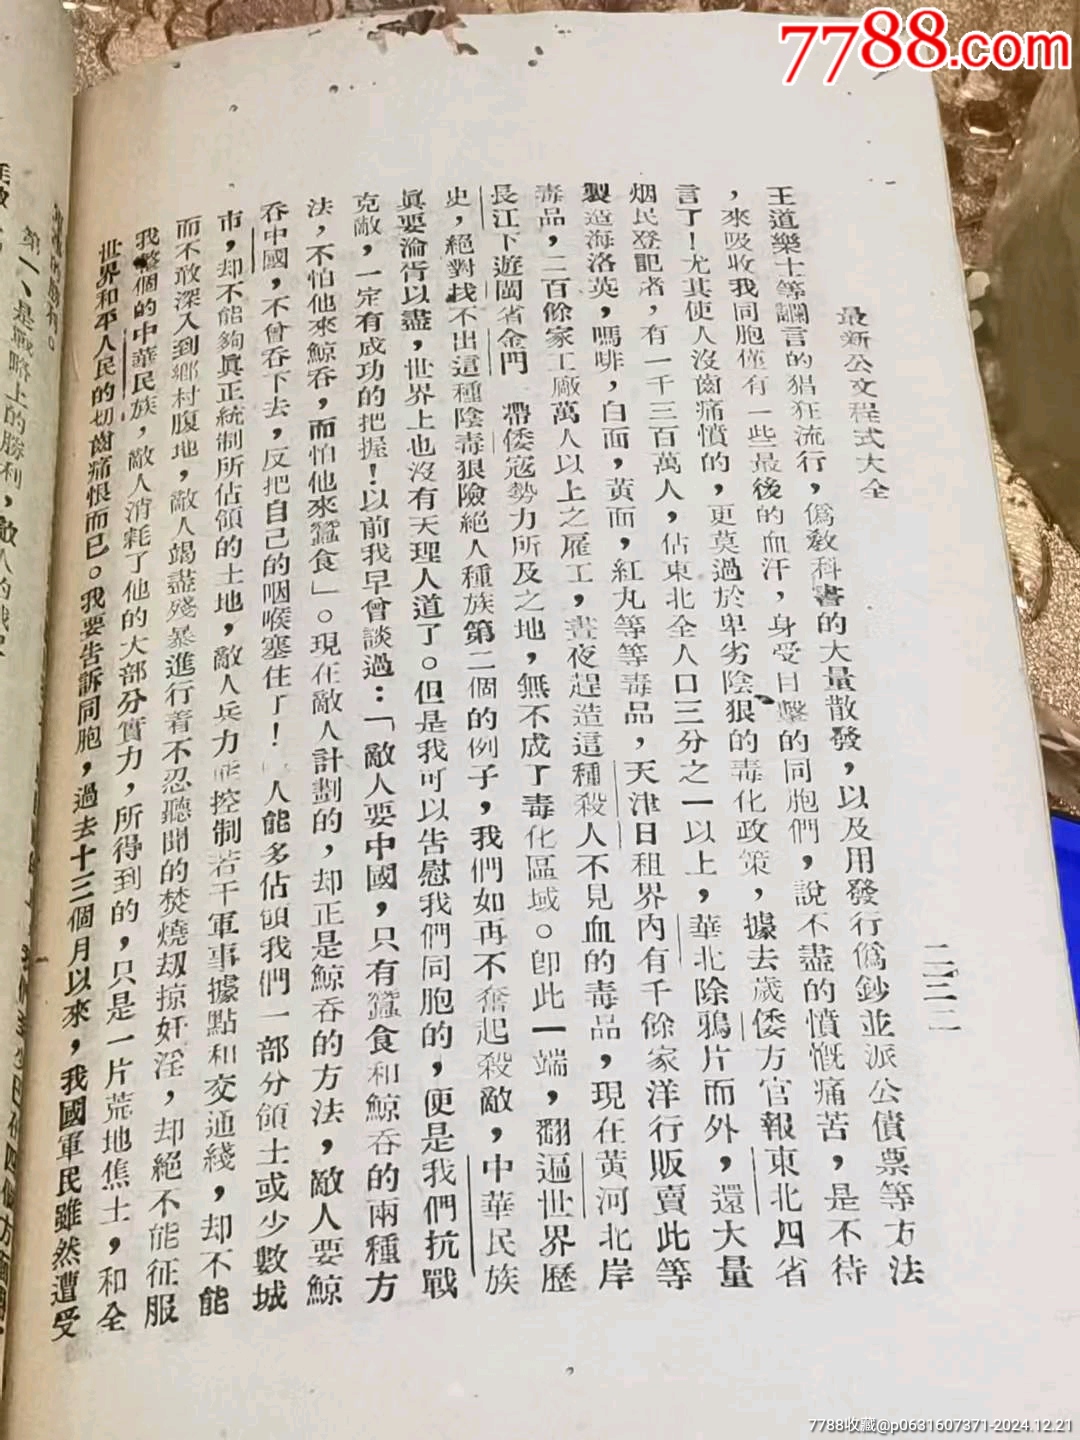 7788.com
最新公文程式大全
二二二
王道樂土等讕言的猖狂流行，僞敎科書的大量散發，以及用發行僞鈔並派公債票等方法
，來吸收我同胞僅有一些最後的血汗，身受目擊的同胞們，說不盡的憤慨痛苦，是不待
言了！尤其使人沒齒痛憤的，更莫過於卑劣陰狠的毒化政策，據去歲倭方官報東北四省
烟民登記者，有一千三百萬人，佔東北全人口三分之一以上，華北除鴉片而外，還大量
製造海洛英，嗎啡，白面，黃面，紅丸等等毒品，天津日租界內有千餘家洋行販賣此等
毒品，二百餘家工廠萬人以上之雇工，晝夜趕造這種殺人不見血的毒品，現在黃河北岸
長江下遊閩省金門　帶倭寇勢力所及之地，無不成了毒化區域。卽此一端，翻遍世界歷
史，絕對找不出這種陰毒狠險絕人種族第二個的例子，我們如再不奮起殺敵，中華民族
眞要淪胥以盡，世界上也沒有天理人道了。但是我可以告慰我們同胞的，便是我們抗戰
克敵，一定有成功的把握！以前我早曾談過：「敵人要中國，只有蠶食和鯨吞的兩種方
法，不怕他來鯨吞，而怕他來蠶食」。現在敵人計劃的，却正是鯨吞的方法，敵人要鯨
吞中國，不曾吞下去，反把自己的咽喉塞住了！　人能多佔領我們一部分領土或少數城
市，却不能夠眞正統制所佔領的土地，敵人兵力能控制若干軍事據點和交通綫，却不能
而不敢深入到鄉村腹地，敵人竭盡殘暴進行着不忍聽聞的焚燒刼掠奸淫，却絕不能征服
我整個的中華民族，敵人消耗了他的大部分實力，所得到的，只是一片荒地焦土，和全
世界和平人民的切齒痛恨而已。我要告訴同胞，過去十三個月以來，我國軍民雖然遭受
第一、是戰略上的勝利，敵人的戰
7788收藏@p0631607371-2024.12.21